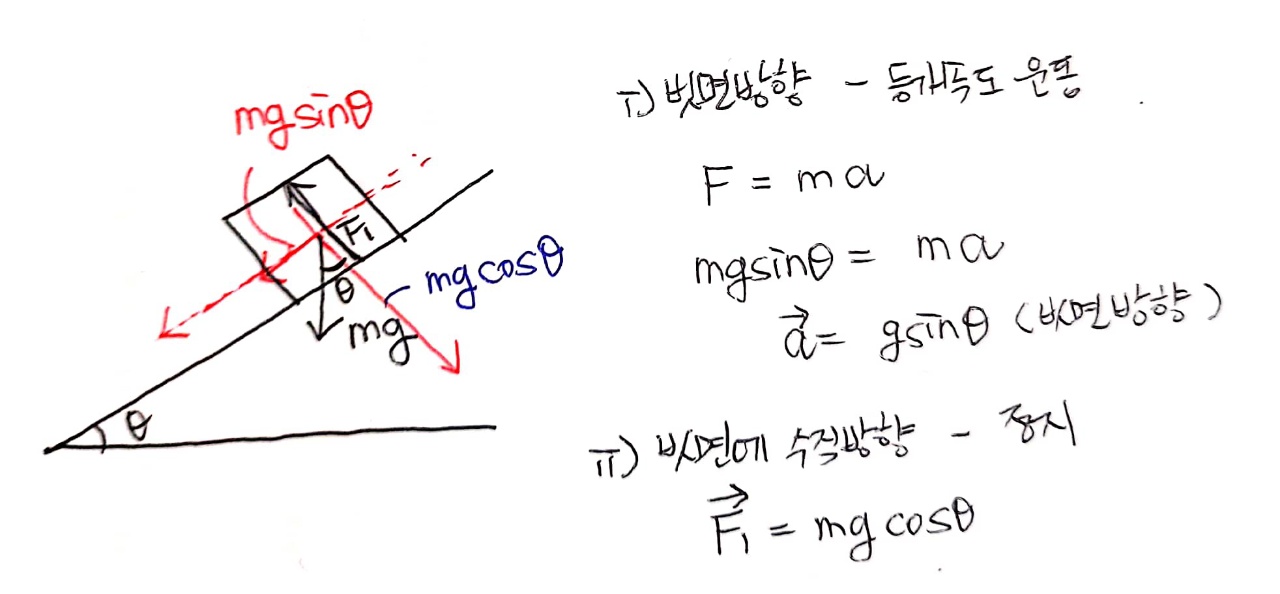 mgsinθ
F₁
θ
mgcosθ
mg
θ
i) 빗면방향 - 등가속도 운동
F = ma
mgsinθ = ma
a⃗ = gsinθ (빗면방향)
ii) 빗면에 수직방향 - 정지
F⃗₁ = mgcosθ